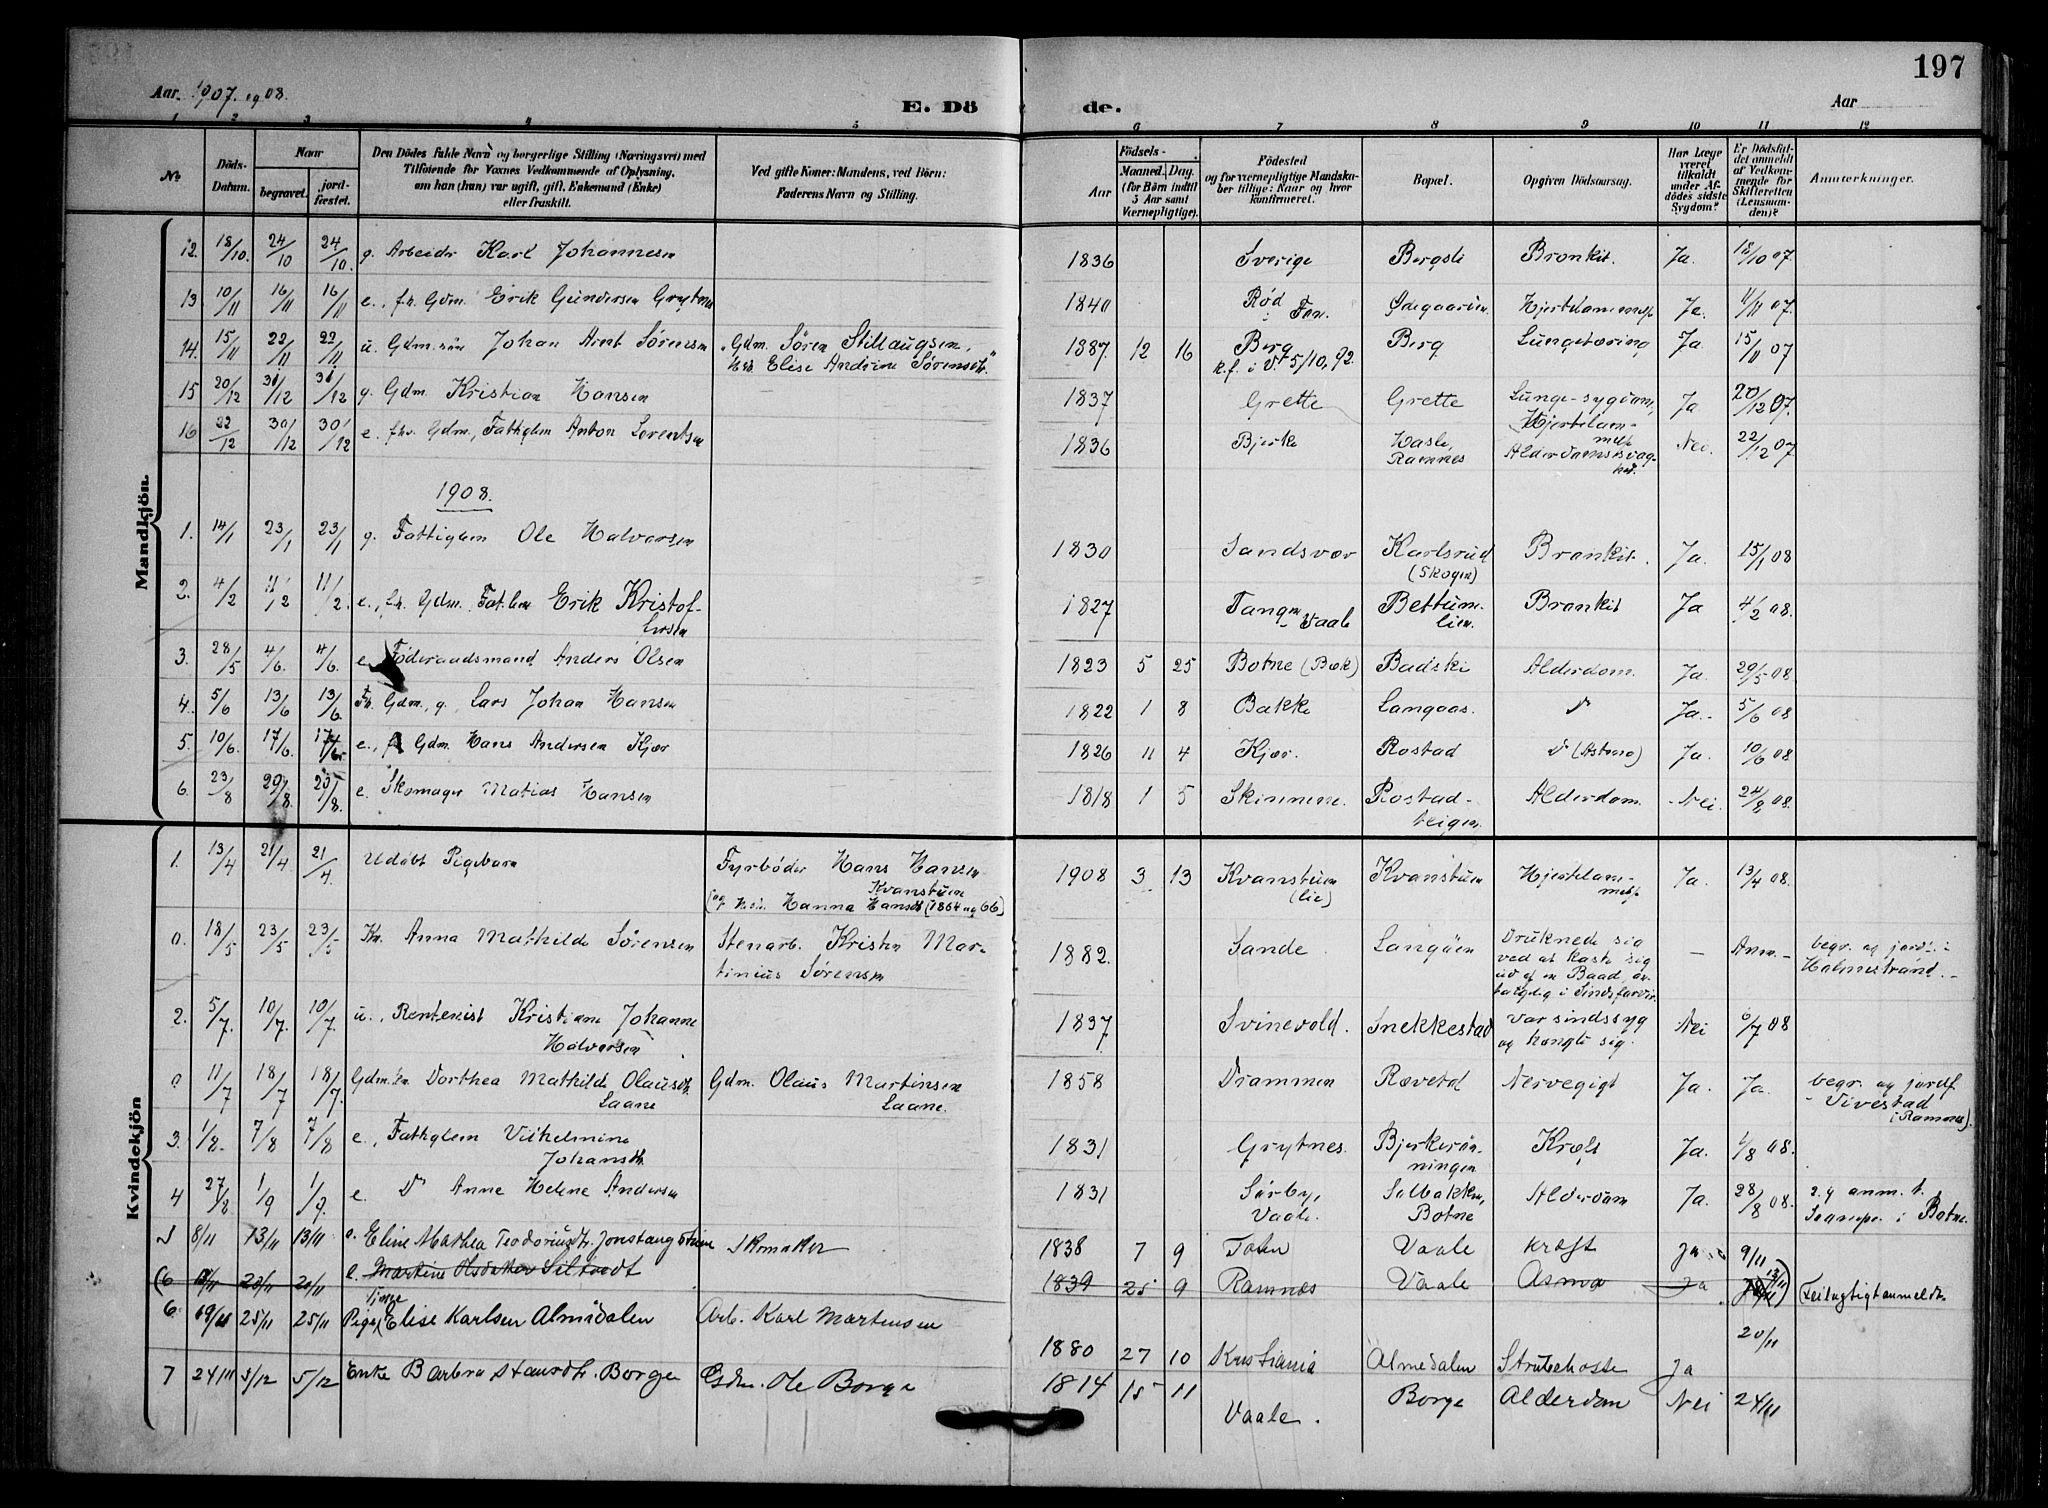 197
Aar 1907 og 08.
E. Dö de.
Aar
1 2 3 4 5 6 7 8 9 10 11 12
No
Döds-Datum.
Naar
begravet.
jord-fæstet.
Den Dödes fulde Navn og borgerlige Stilling (Næringsvei) med
Tilføiende for Voxnes Vedkommende af Oplysning,
om han (hun) var ugift, gift, Enkemand (Enke)
eller fraskilt.
Ved gifte Koner: Mandens, ved Börn:
Faderens Navn og Stilling.
Födsels-
Aar
Maaned. Dag.
(for Börn indtil
5 Aar samt
Værnepligtige).
Födested
og for værnepligtige Mandska-
ber tillige: Naar og hvor
konfirmeret.
Bopæl.
Opgiven Dödsaarsag.
Har Læge
været
tilkaldt
under Af-
dödes sidste
Sygdom?
Er Dödsfal-
det anmeldt
af Vedkom-
mende for
Skifteretten
(Lensman-
den)?
Anmærkninger.
Mandkjön.
12. 18/10. 24/10 24/10. g. Arbeider Karl Johannesen 1836 Sverige Bergsli Bronkit. Ja. 18/10 07.
13 10/11 16/11 16/11 e., fh. Gdm. Erik Gundersen Grytnes 1840 Rød i Fon. Ødegaarden. Hjertelammelse Ja. 11/11 07.
14. 15/11 22/11 22/11 u. Gdm. søn Johan Arnt Sørensen Gdm. Søren Stillaugsen, Hst. Elise Andrine Sørensdt. 1887. 12 16 Berg k.f. i V. 5/10, 92. Berg Lungetæring Ja 15/11 07
15 20/12 31/12 31/12 g. Gdm. Kristian Hansen 1837 Grette Grette Lunge-sygdom, Hjertelammelse Ja 20/12 07.
16 22/12 30/12 30/12 e. fhv. Gdm., Fattiglem Anton Lorentsen 1836 Bjerke Hasle, Ramnes Alderdomssvaghed. Nei. 22/12 07
1908.
1. 14/1 23/1 23/1 g. Fattiglem Ole Halvorsen 1830 Sandsvær Karlsrud (Skogen) Bronkit. Ja. 15/1 08
2. 4/2 11/2 11/2. e., fh. Gdm., Fat.lem Erik Kristoffersen 1827 Tangen Vaale Bettumlien. Bronkit Ja 4/2 08.
3. 28/5 4/6. 4/6. e. Føderaadsmand Anders Olsen 1823 5 25 Botne (Bæk) Budski Alderdom. Ja. 29/5 08.
4. 5/6 13/6 13/6. Fh. Gdm., g. Lars Johan Hansen 1822 1 8 Bakke Langaas. Do Ja. 5/6 08
5. 10/6. 17/6. 17/6. e., Gdm. Hans Andersen Kjær 1826 11 4 Kjær. Rostad Do (Astma) Ja. 10/6 08
6. 23/8 29/8. 29/8. e. Skomager Matias Hansen 1818 1 5 Skimmene. Rostadteigen. Alderdom. Nei. 24/8 08.
Kvindekjön
1. 13/4 21/4 21/4. Udøbt Pigebarn Fyrbøder Hans Hansen Kvanstuen (og Hst. Hanna Hansdt. (1864 og 66) 1908 3 13 Kvanstuen (lie) Kvanstuen Hjertelammelse Ja. 13/4 08.
0. 18/5 23/5 23/5 Kn. Anna Mathilde Sørensen Stenarb. Kristen Martinius Sørensen 1882. Sande Langøen Druknede sig ved at kaste sig ud af en Baad, antagelig i Sindsforvir. — Anm. — begr. og jordf. i Holmestrand. —
2. 5/7. 10/7. 10/7 u., Rentenist Kristiane Johanne Halvorsen 1837 Svinevold. Snekkestad Var sindssyg og hængte sig. Nei 6/7 08
0 11/7 18/7 18/7. Gdm. en Dorthea Mathilde Olausdt. Laane Gdm. Olaus Martinsen Laane. 1858 Drammen Rævetd Nervegigt Ja. Ja. begr. og jordf. Vivestad i Ramnes).
3. 1/8. 7/8 7/8 e., Fattiglem Vilhelmine Johansdt. 1831 Grytnes. Bjerkerønningen Kræft Ja. 1/8 08.
4 27/8 1/9 1/9. e. Do Anne Helene Andersen 1831 Sørby, Vaale. Solbakken, Botne Alderdom Ja. 28/8 08. anm. t. i Botne
5 8/11 13/11 13/11 e. Eline Mathea Teodoriusdt. Jonstangstuen Skomaker 1838 7 9 Tofen Vaale kræft Ja 9/11
(6 20/11 20/11 e. Martine Olsdatter 1839 25 9 Ramnæs Vaale Asma Ja 13/11) Feilagtigt anmeldt.
6. 19/11 25/11 25/11 Pige, Elise Karlsen Almedalen Arb. Karl Martensen 1880 27 10 Kristiania Almedalen Strubehoste Ja 20/11
7 24/11 5/12 5/12 Enke Barbra Borge Gdm. Ole Borge 1814 15 11 Vaale. Borge Alderdom Nei 24/11